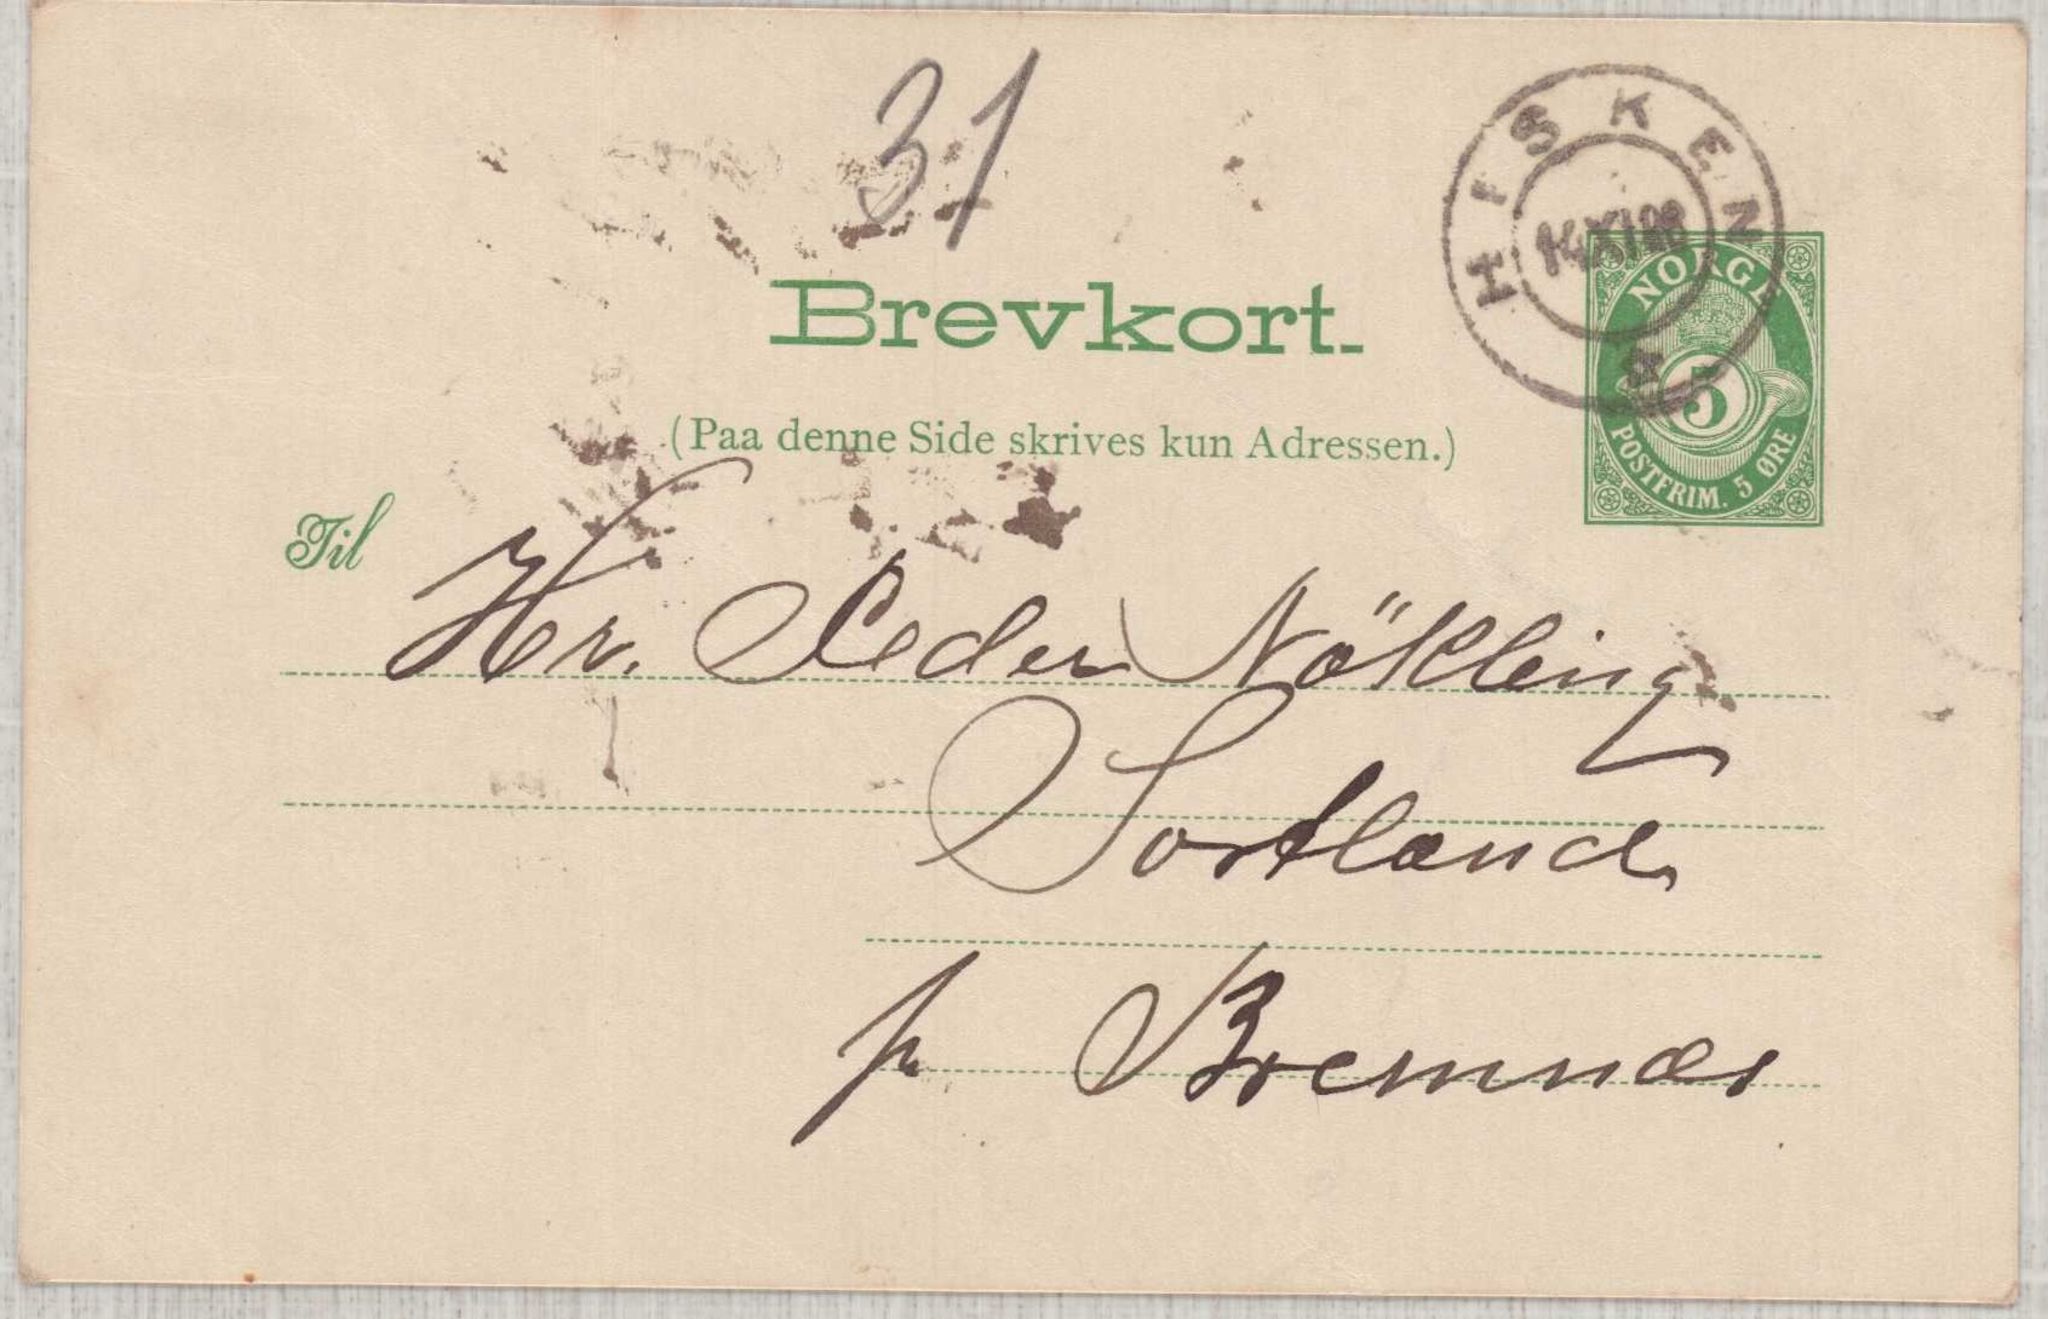 31
HISKEN
14 XI 98
NORGE
5
POSTFRIM. 5 ØRE
Brevkort.
(Paa denne Side skrives kun Adressen.)
Til
Hr. Peder Nökling
Sortland
pr Bremnæs